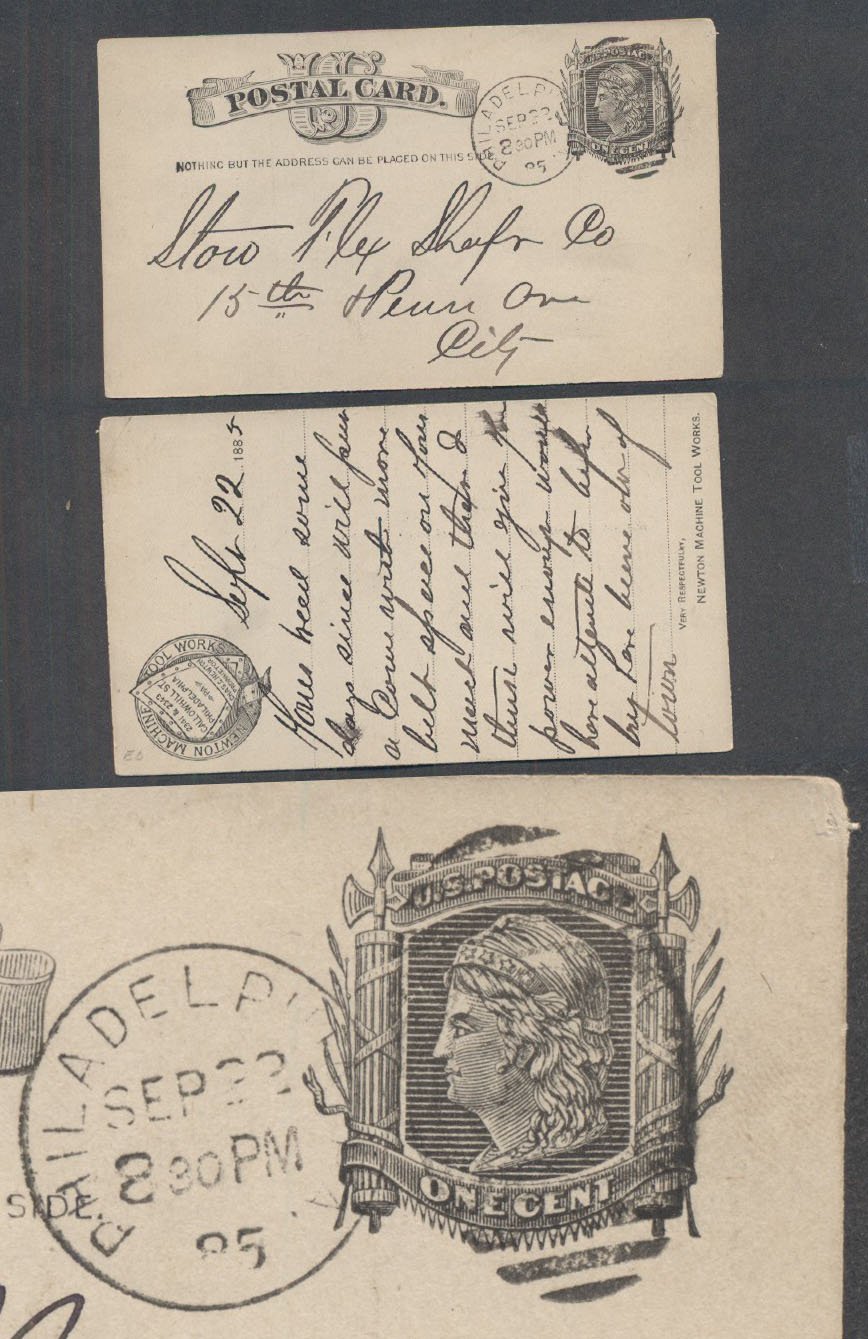 US
POSTAL CARD.
NOTHING BUT THE ADDRESS CAN BE PLACED ON THIS SIDE.
PHILADELPHIA
SEP 22
8 30 PM
85
U.S. POSTAGE
ONE CENT
Stow Flex Shaft Co
15th & Penn Ave
City
NEWTON MACHINE TOOL WORKS
2341 & 2343
CALLOWHILL ST.
PHILADELPHIA
PA.
Sept 22 1885
Yours recd some
days since will put
a Cone with more
belt space on yours
and
these will give you
power enough would
have attended to before
but have been out of
town
VERY RESPECTFULLY,
NEWTON MACHINE TOOL WORKS.
ED
SIDE.
PHILADELPHIA
SEP 22
8 30 PM
85
U.S. POSTAGE
ONE CENT